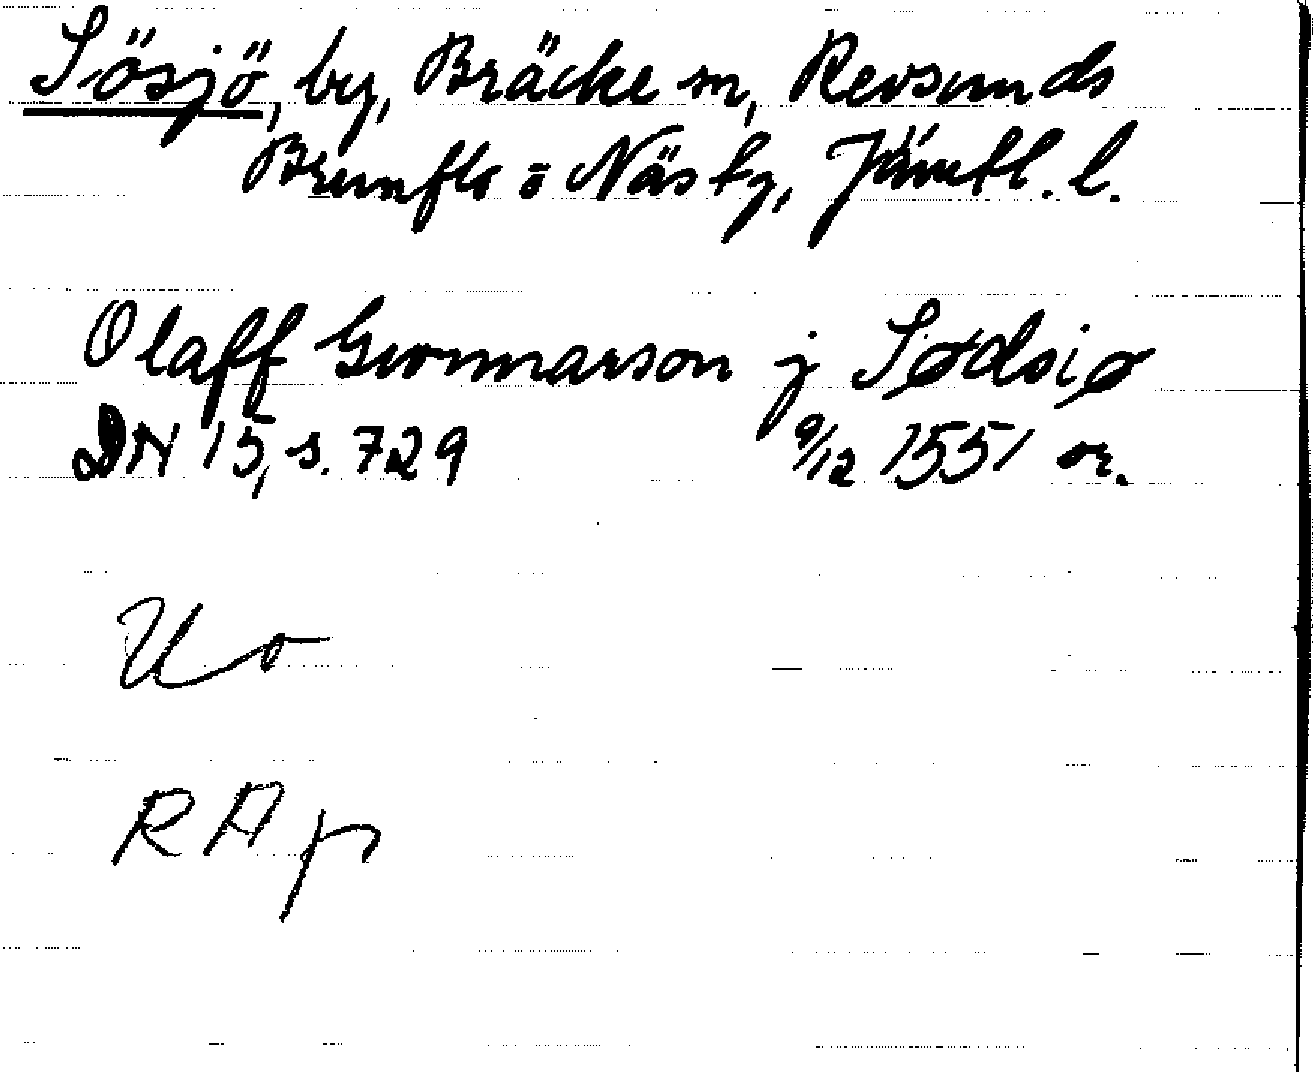 Sösjö, by, Bräcke sn, Revsunds
Brunflo o Näs tg, Jämtl. l.
Olaff Gunnarson j Sødsiø
DN 15, s. 729 9/12 1551 or.
RAp